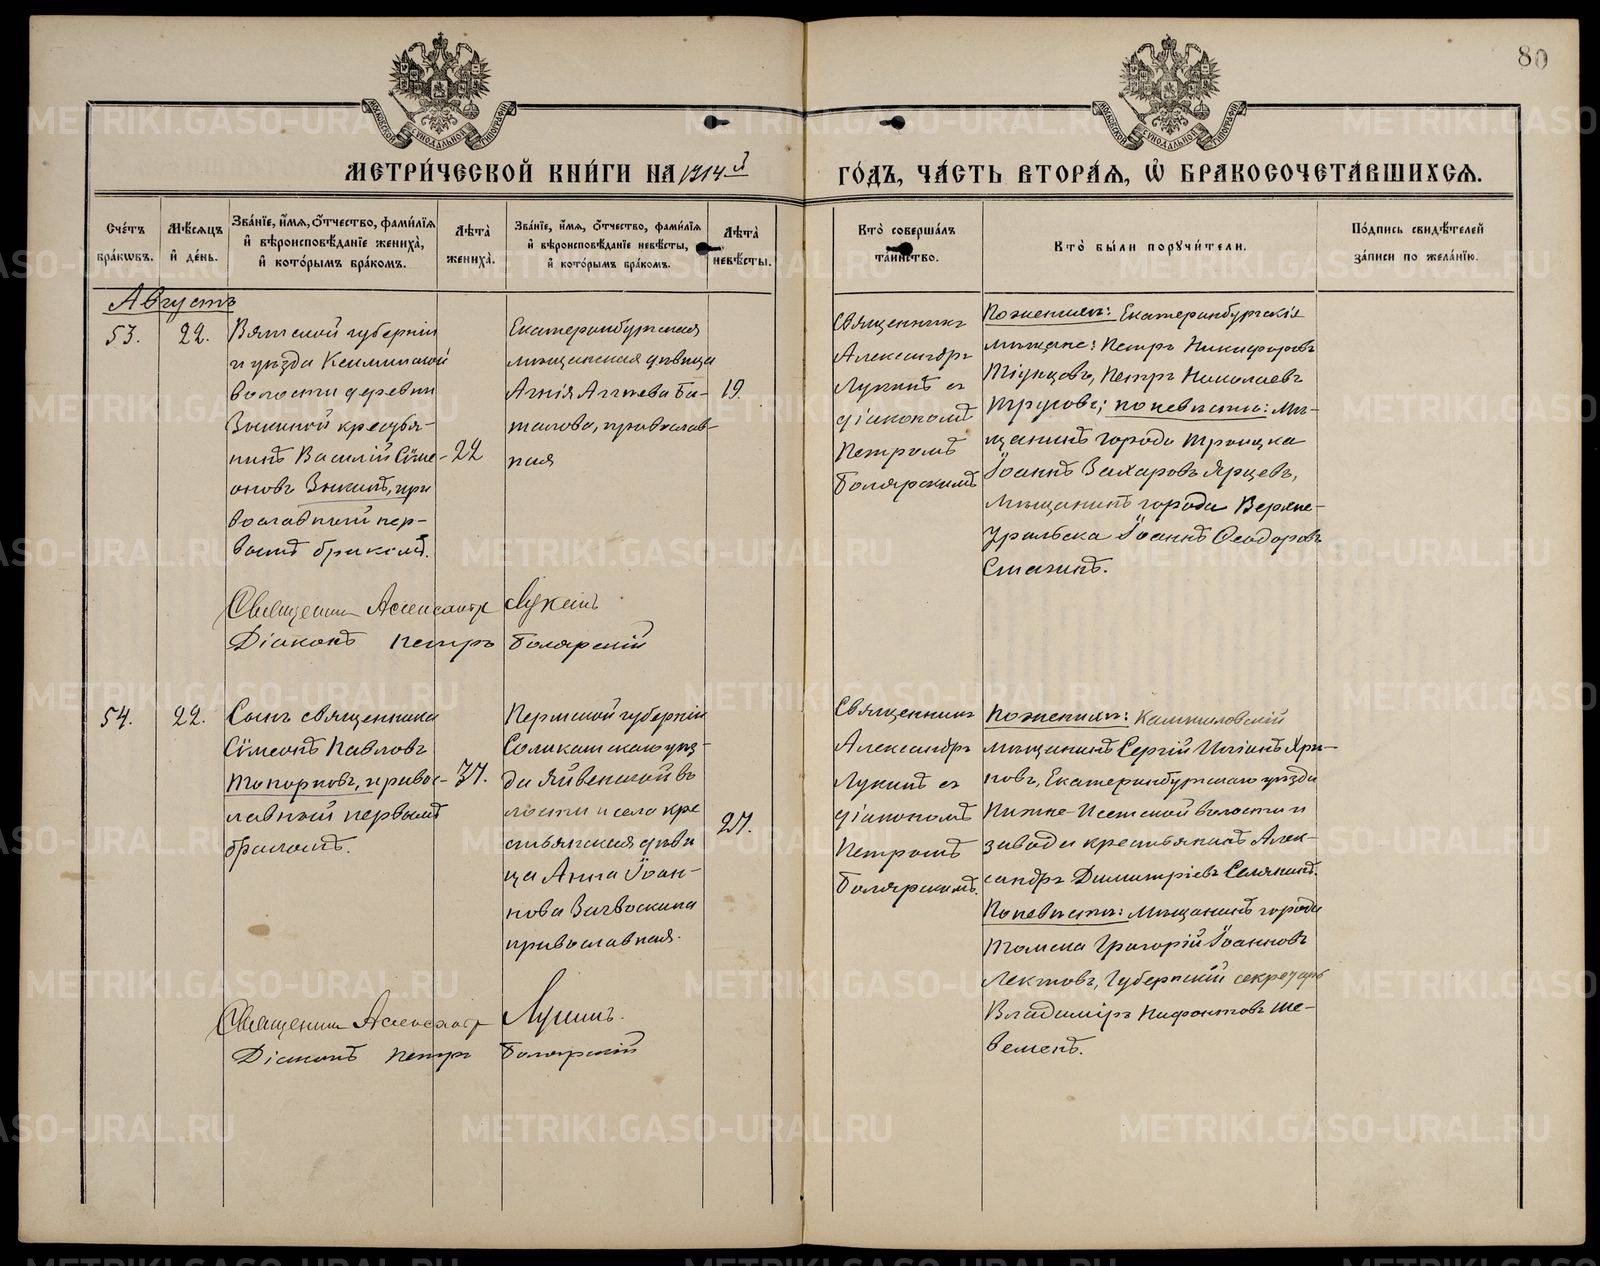 80
МЕТРИЧЕСКОЙ КНИГИ НА 1914й ГОДЪ, ЧАСТЬ ВТОРАЯ, Ѡ БРАКОСОЧЕТАВШИХСЯ.
Счетъ браковъ.
Мѣсяцъ и день.
Званіе, имя, отчество, фамилія и вѣроисповѣданіе жениха, и которымъ бракомъ.
Лѣта жениха.
Званіе, имя, отчество, фамилія и вѣроисповѣданіе невѣсты, и которымъ бракомъ.
Лѣта невѣсты.
Кто совершалъ таинство.
Кто были поручители.
Подпись свидѣтелей записи по желанію.
Августъ
53.
22.
Вятской губерніи
и уѣзда
волости деревни
Зыкиной крестья-
нинъ Василій Сѵме-
оновъ Зыкинъ, пра
вославный пер-
вымъ бракомъ.
22
Екатеринбургская
мѣщанская дѣвица
Агнія Аггѣева Ба-
талова, православ-
ная
19.
Священникъ
Александръ
Лукинъ съ
діакономъ
Петромъ
Боярскимъ
По женихѣ: Екатеринбургскіе
мѣщане: Петръ Никифоровъ
Петръ Николаевъ
Трусовъ; по невѣстѣ: Мѣ-
щанинъ города Троицка
Іоаннъ Захаровъ Ярцевъ,
мѣщанинъ города Верхне-
Уральска Іоаннъ Ѳеодоровъ
Смагинъ.
Священникъ Александръ Лукинъ
Діаконъ Петръ Боярскій
54.
22.
Сынъ священника
Сѵмеонъ Павловъ
Топорковъ, правос-
лавный первымъ
бракомъ.
37.
Пермской губерніи
Соликамскаго уѣз-
да Яйвенской во
лости и села кре
стьянская дѣви
ца Анна Іоан-
нова Загвоскина
православная.
27.
Священникъ
Александръ
Лукинъ съ
діакономъ
Петромъ
Боярскимъ.
По женихѣ: Камышловскій
мѣщанинъ Сергій
Екатеринбургскаго уѣзда
Нижне-Исетской волости и
завода крестьянинъ Алек-
сандръ Димитріевъ Селянинъ.
По невѣстѣ: мѣщанинъ города
Томска Григорій Іоанновъ
Лектовъ, Губернскій секретарь
Владиміръ Нифонтовъ Ше-
веменъ.
Священникъ Александръ Лукинъ.
Діаконъ Петръ Боярскій
METRIKI.GASO-URAL.RU